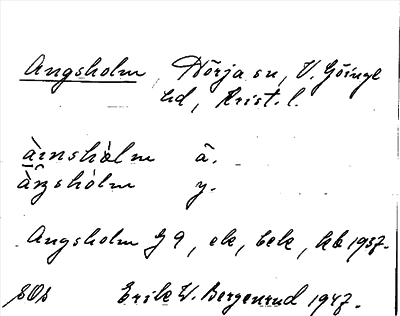 Angsholm, Nörja sn, V. Göinge
hd, Krist. l.
àrnshòlm ä.
àŋshòlm y.
Angsholm J 9, ek, bek, kb 1937.
SOs Erik W. Bergenrud 1947.